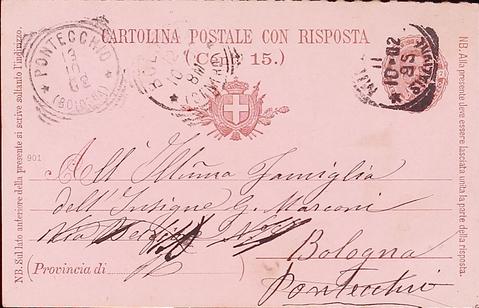 CARTOLINA POSTALE CON RISPOSTA
(Cent. 15.)
PONTECCHIO
13
10
02
(BOLOGNA)
10-02
NB. Sul lato anteriore della presente si scrive soltanto l'indirizzo.
NB. Alla presente deve essere lasciata unita la parte della risposta.
901
All' Illma Famiglia
dell' Insigne G. Marconi
Via
Bologna
(Provincia di
Pontecchio